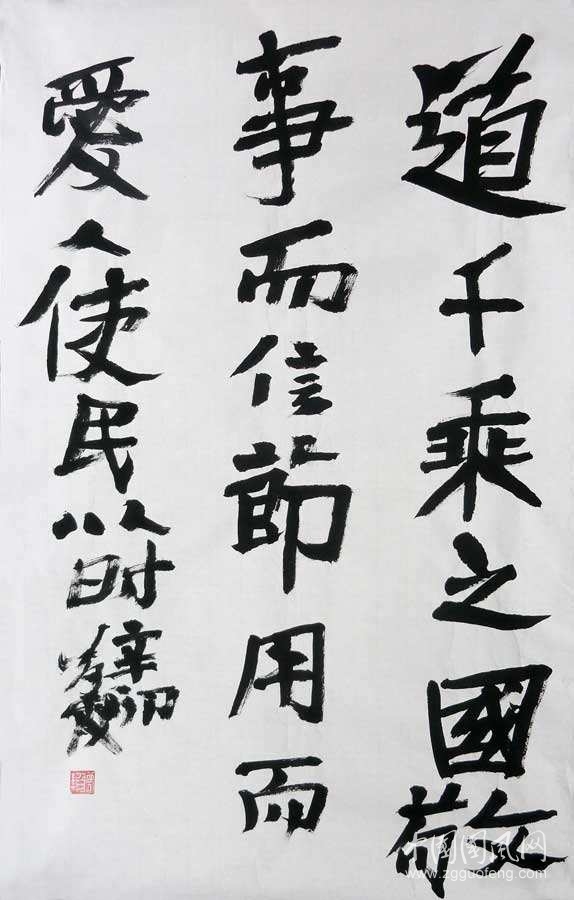 道千乘之國敬
事而信節用而
愛人使民以時
辛卯
中国国风网
www.zgguofeng.com